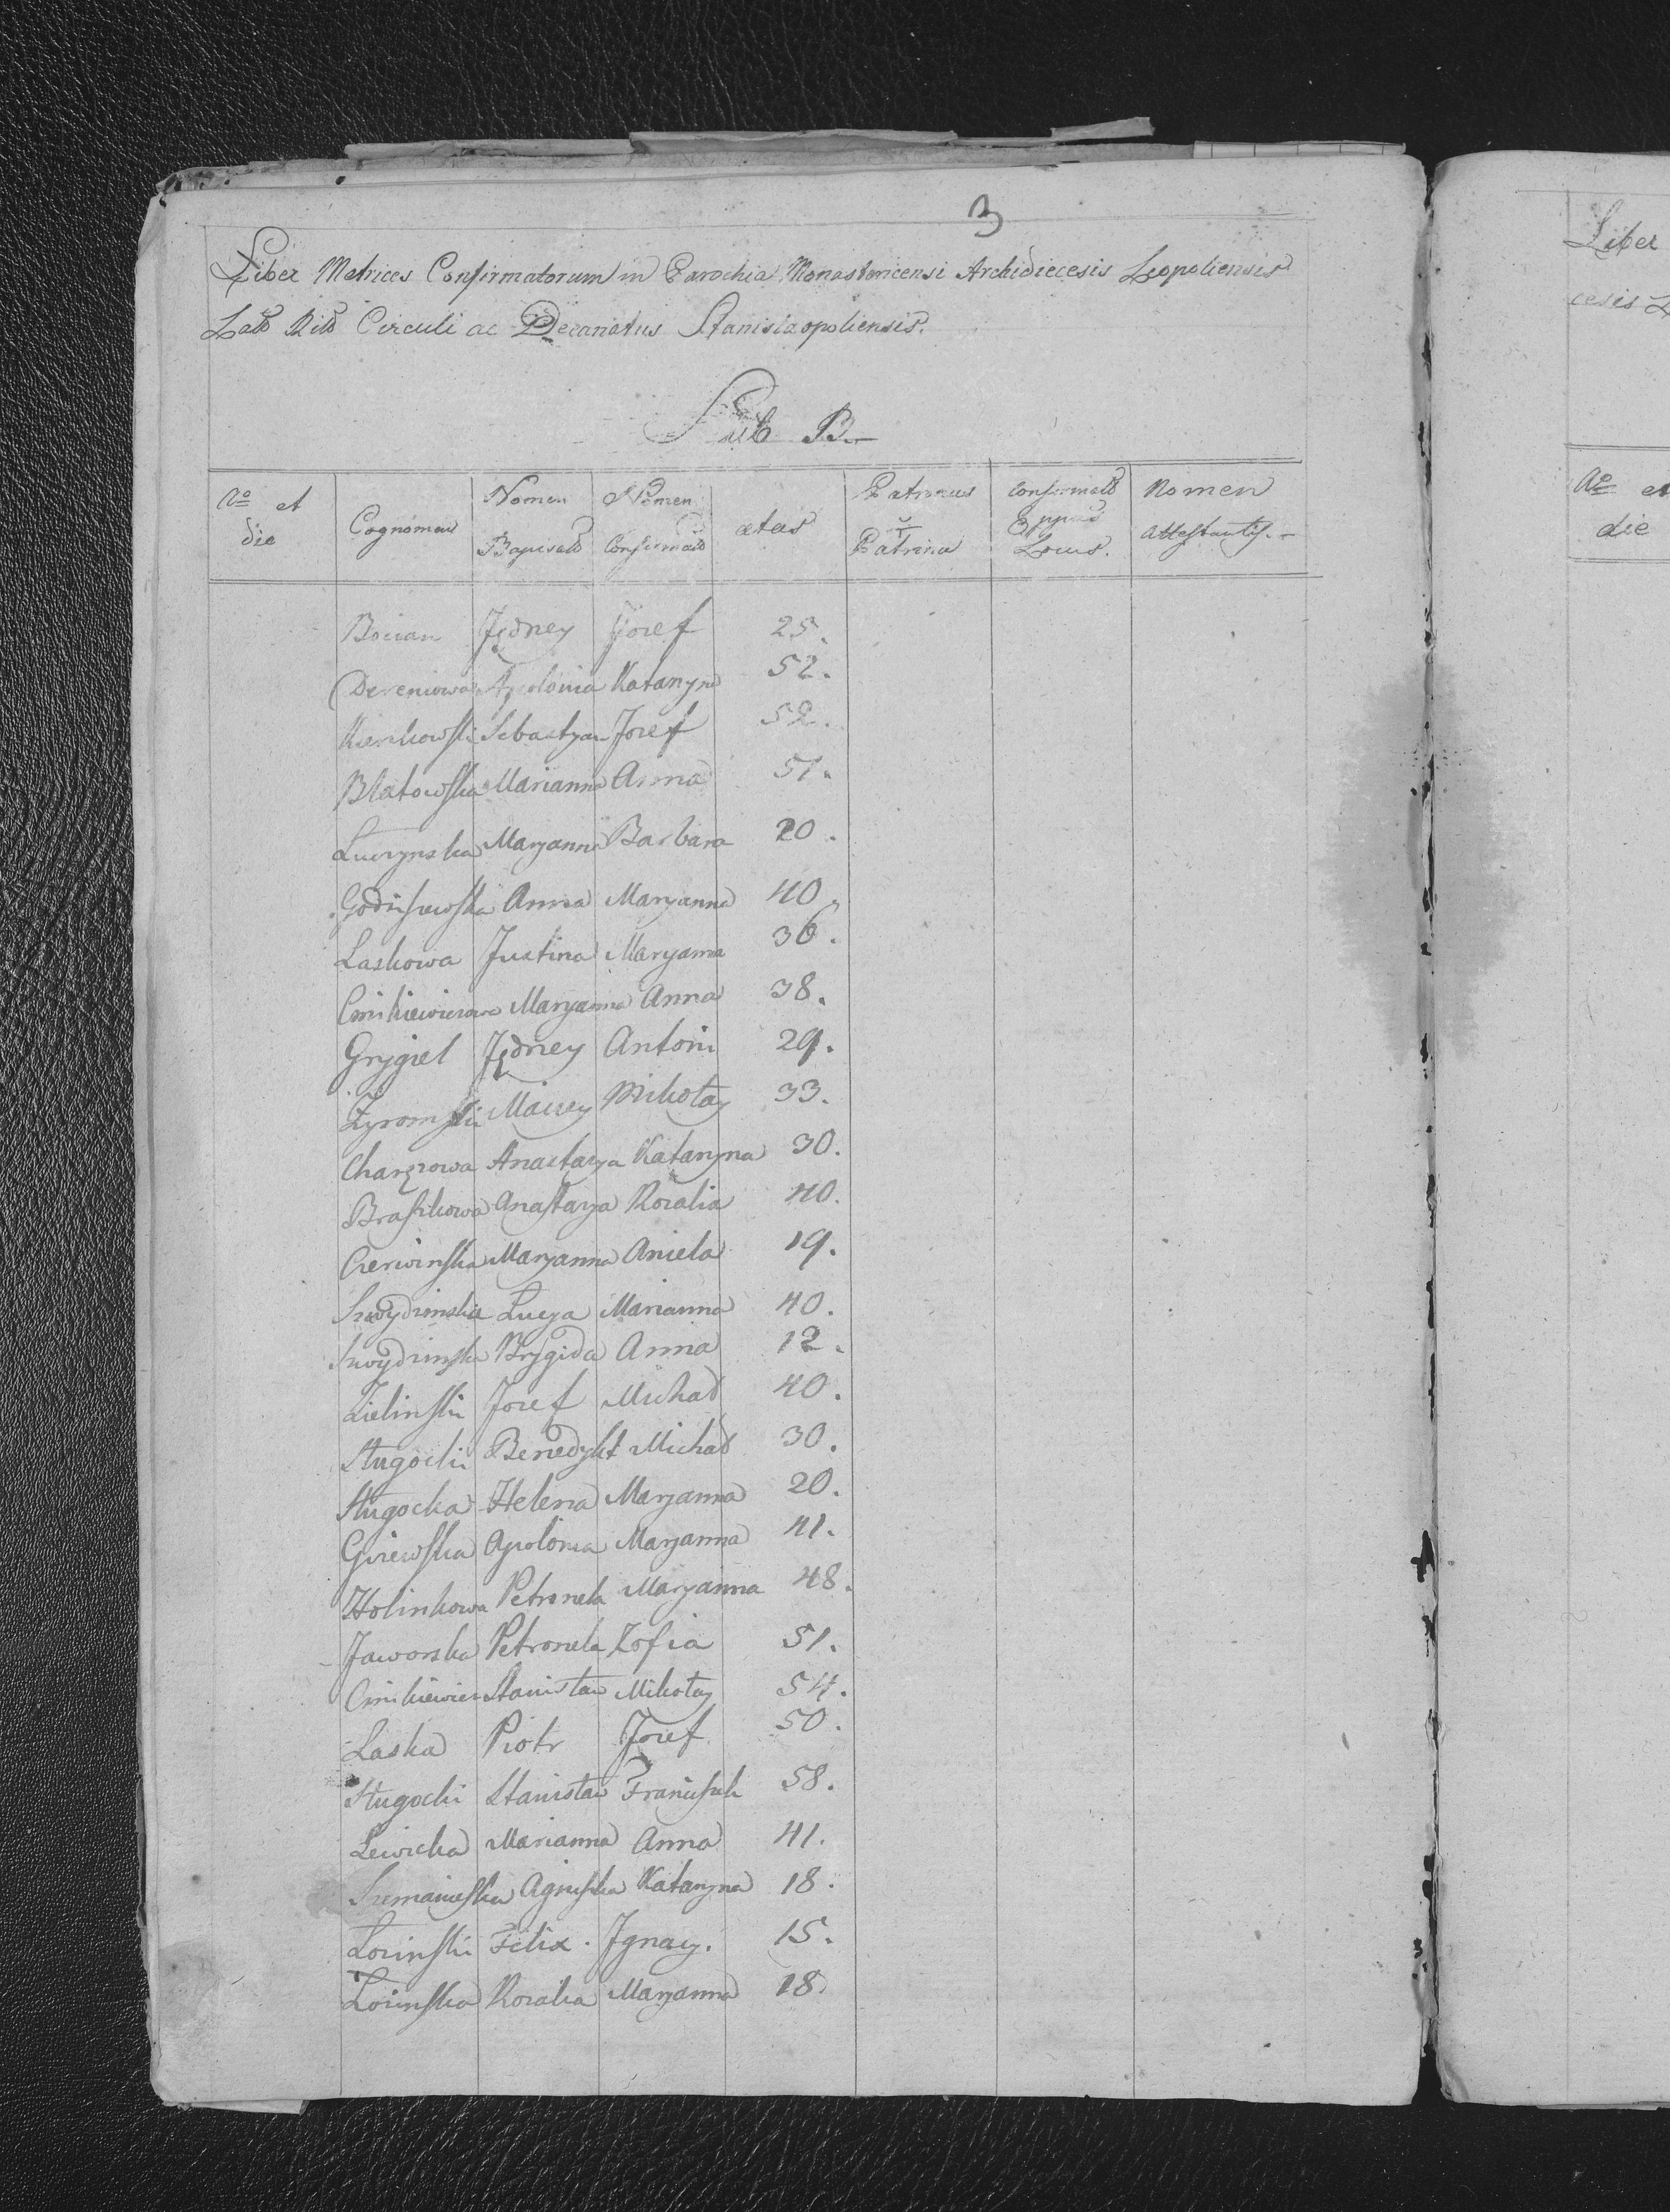 3
Liber Metrices Confirmatorum in Parochia Monastericensi Archidiecesis Leopoliensis
Latõ Ritõ Circuli ac Decanatus Stanislaopoliensis.
Sub B.
Aº et die Cognomen Nomen Baptisatõ Nomen Confirmatõ ætas Patrinus Patrina Confirmatõ Locus. Nomen Attestantis.
Bocian Jędrzey Jozef 25.
Dereniowa Apolonia Katarzyna 52.
Sebastyan Jozef 52.
Blatowska Marianna Anna 51.
Luczynska Maryanna Barbara 20.
Godziszewska Anna Maryanna 40.
Laskowa Justina Maryanna 36.
Cmikiewiczowa Maryanna Anna 38.
Grygiel Jędrzey Antoni 29.
Żyromski Maciey Mikołay 33.
Charęzowa Anastazya Katarzyna 30.
Braszkowa Anastazya Rozalia 40.
Czerwinska Maryanna Aniela 19.
Szwydzinska Lucya Marianna 40.
Szwydzinska Brygida Anna 12.
Zielinski Jozef Michał 40.
Sługocki Benedykt Michał 30.
Sługocka Helena Maryanna 20.
Gizewska Apolonia Maryanna 41.
Holinkowa Petronela Maryanna 48.
Jaworska Petronela Zofia 51.
Cmikiewicz Stanisław Mikołay 54.
Laska Piotr Jozef 50.
Sługocki Stanisław Franciszek 58.
Lewicka Marianna Anna 41.
Agniszka Katarzyna 18.
Lozinski Felix. Jgnacy. 15.
Lozinska Rozalia Maryanna 18.
Liber
Aº et
die